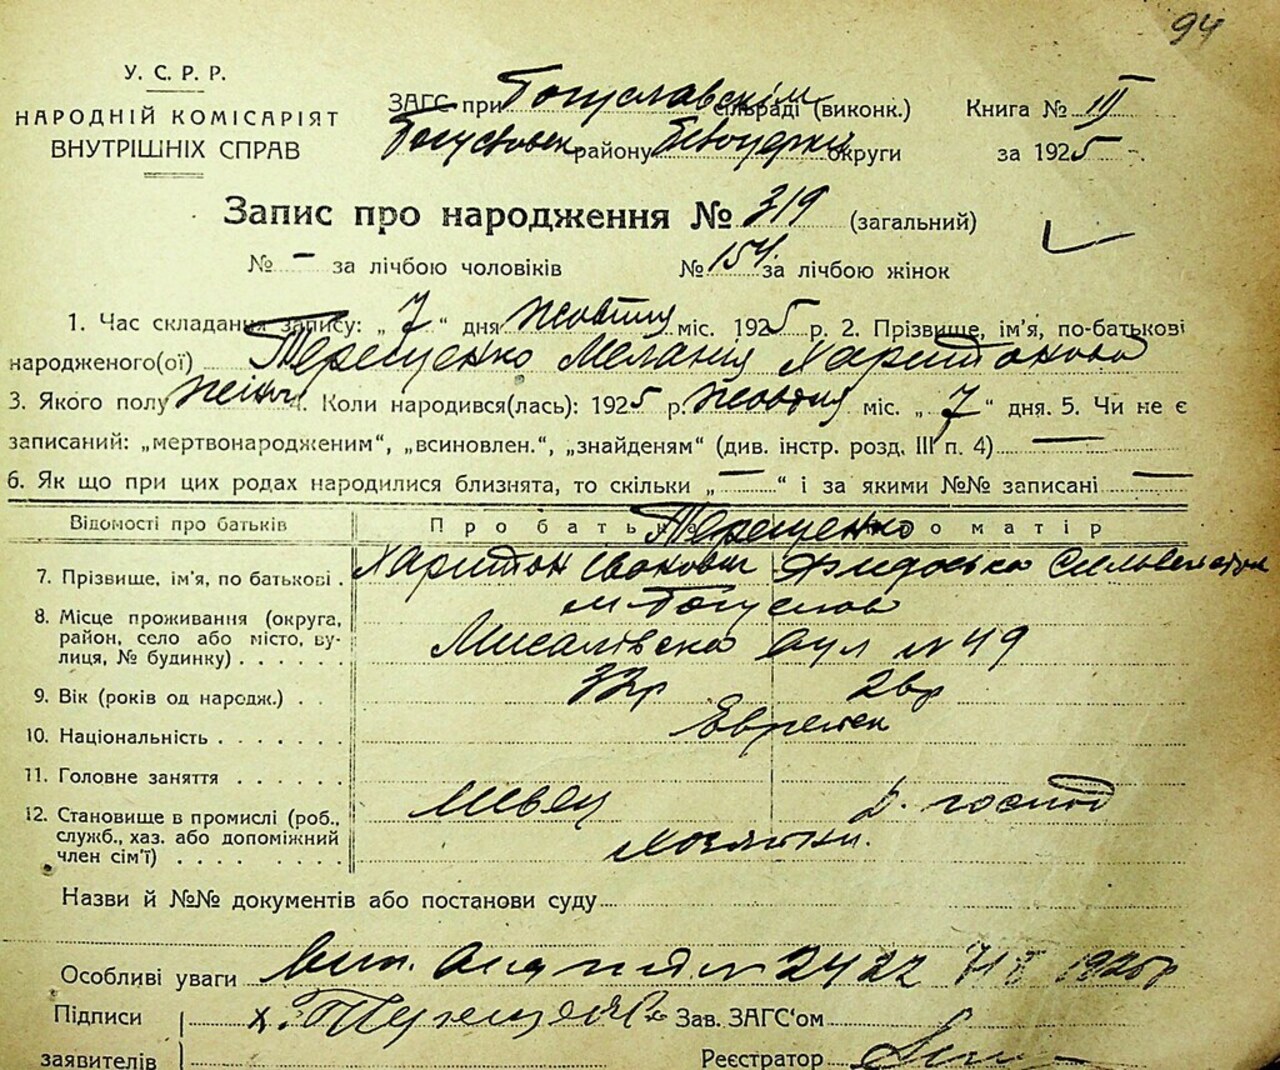 94
У. С. Р. Р.
НАРОДНІЙ КОМІСАРІЯТ
ВНУТРІШНІХ СПРАВ
ЗАГС при Богуславскім сільраді (виконк.) Книга № III
району округи за 1925 р.
Запис про народження № 319 (загальний)
№ – за лічбою чоловіків № 154 за лічбою жінок
1. Час складання запису: „ 7 “ дня Жовтня міс. 1925 р. 2. Прізвище, ім'я, по-батькові
народженого(ої) Терещенко Меланія Харитоновна
3. Якого полу жіноч 4. Коли народився(лась): 1925 р. Жовтня міс. „ 7 “ дня. 5. Чи не є
записаний: „мертвонародженим“, „всиновлен.“, „знайденям“ (див. інстр. розд. III п. 4) —
6. Як що при цих родах народилися близнята, то скільки „ — “ і за якими №№ записані —
Відомості про батьків Про батька Про матір
Терещенко
7. Прізвище, ім'я, по батькові . Харитон Іванович
8. Місце проживання (округа, м Богуслав
район, село або місто, ву-
лиця, № будинку) . . . . . . вул № 49
9. Вік (років од народж.) . . 33р
10. Національність . . . . . . .
11. Головне заняття . . . . . .
12. Становище в промислі (роб., Швец д. господ
служб., хаз. або допоміжний
член сім'ї) . . . . . .
Назви й №№ документів або постанови суду
Особливі уваги № 2422 1925р
Підписи Х. Терещенко Зав. ЗАГС'ом
заявителів Реєстратор